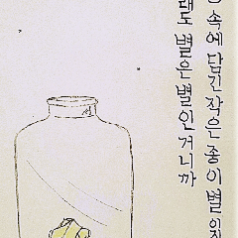 속에 담긴 작은 종이별일지
래도 별은 별인거니까